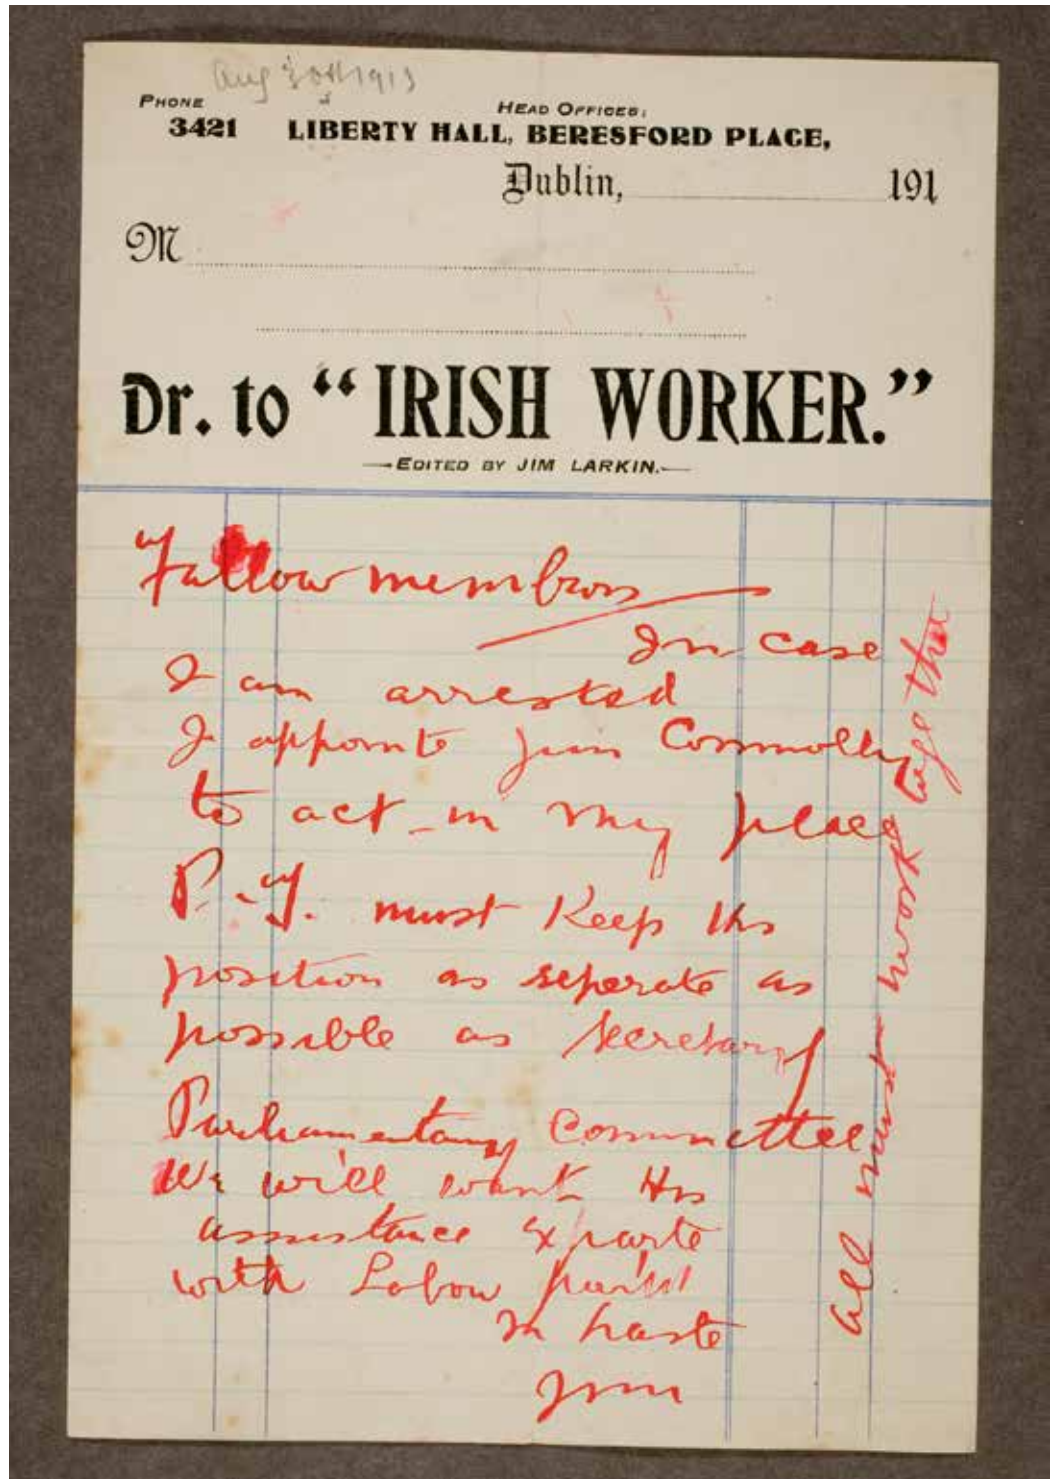 Aug 30th 1913
PHONE
3421
HEAD OFFICES:
LIBERTY HALL, BERESFORD PLACE,
Dublin, 191
M
Dr. to “IRISH WORKER.”
—EDITED BY JIM LARKIN.—
Fellow members
In case
I am arrested
I appointe Jim Connolly
to act in my place
P. T. must keep his
position as seperate as
possible as secretary
Parliamentary Committee
We will want His
assistance Exparte
with Labour
in haste
Jim
All must work together